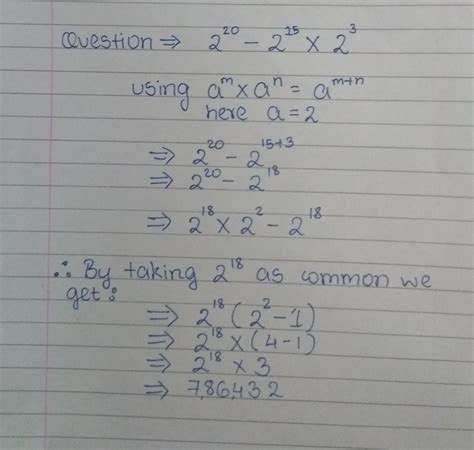 Question ⇒ 2²⁰ - 2¹⁵ × 2³
using aᵐ × aⁿ = aᵐ⁺ⁿ
here a = 2
⇒ 2²⁰ - 2¹⁵⁺³
⇒ 2²⁰ - 2¹⁸
⇒ 2¹⁸ × 2² - 2¹⁸
∴ By taking 2¹⁸ as common we
get :
⇒ 2¹⁸ (2² - 1)
⇒ 2¹⁸ × (4 - 1)
⇒ 2¹⁸ × 3
⇒ 7,86,432